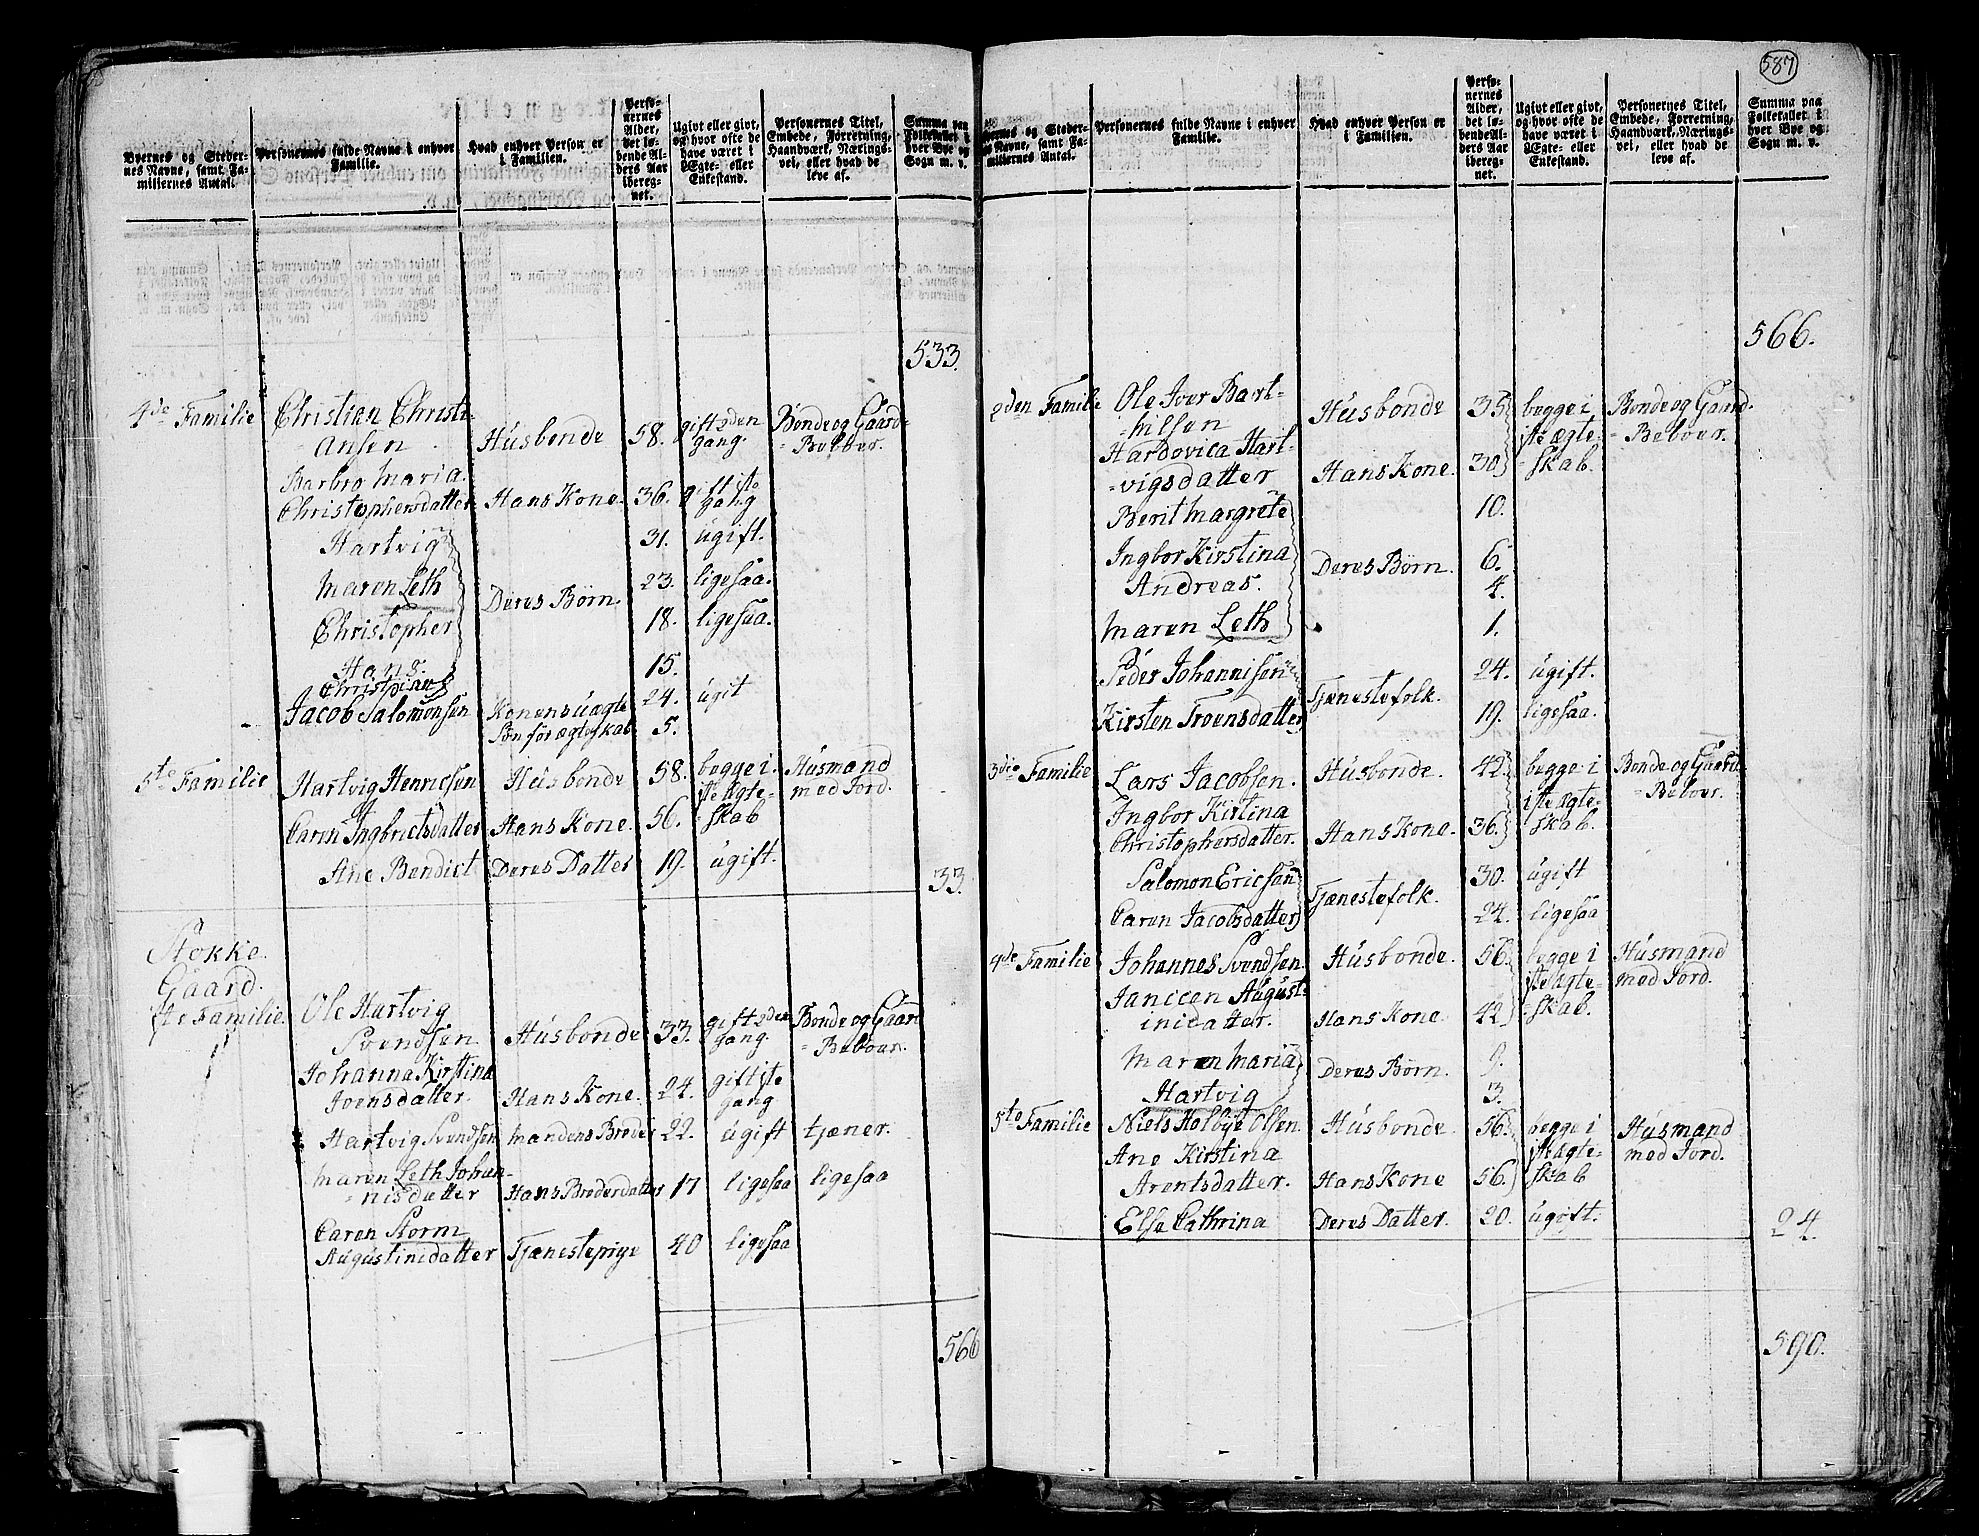 587
Byernes og Steder-
nes Navne, samt Fa-
miliernes Antal.
Personernes fulde Navne i enhver
Familie.
Hvad enhver Person er
i Familien.
Perso-
nernes
Alder,
det lø-
bende Al-
ders Aar
iberegnet.
Ugivt eller givt,
og hvor ofte de
have været i
Ægte- eller
Enkestand.
Personernes Titel,
Embede, Forretning,
Haandværk, Nærings-
vei, eller hvad de
leve af.
Summa paa
Folketallet i
hver Bye og
Sogn m. v.
533.
4de Familie Christian Christi-
ansen Husbonde 58. gift 2den gang. Bonde og Gaard-
Beboer.
Barbro Maria
Christophersdatter Hans Kone. 36. gift 1ste gang
Hartvig 31. ugift.
Maren Leth Deres Børn. 23. ligesaa.
Christopher 18. ligesaa.
Hans 15.
Christian
Jacob Salomonsen Konens uægte 24. ugit
Søn før ægteskab 5.
5te Familie Hartvig Henricsen Husbonde 58. begge i Husmand
1ste Ægte- med Jord.
Caren Ingbrictsdatter Hans Kone. 56. skab
Ane Bendict Deres Datter 19. ugift.
33.
Stokke
Gaard.
1ste Familie. Ole Hartvig
Svendsen Husbonde 33. gift 2den gang. Bonde og Gaard
Beboer.
Johanna Kirstina
Joensdatter. Hans Kone. 24. gift 1ste gang
Hartvig Svendsen Mandens Broder 22. ugift tjæner.
Maren Leth Johan-
nisdatter Hans Broderdatter 17 ligesaa ligesaa
Caren Storm
Augustinidatter Tjænestepige 40 ligesaa
566
Byernes og Steder-
nes Navne, samt Fa-
miliernes Antal.
Personernes fulde Navne i enhver
Familie.
Hvad enhver Person er
i Familien.
Perso-
nernes
Alder,
det lø-
bende Al-
ders Aar
iberegnet.
Ugivt eller givt,
og hvor ofte de
have været i
Ægte- eller
Enkestand.
Personernes Titel,
Embede, Forretning,
Haandværk, Nærings-
vei, eller hvad de
leve af.
Summa paa
Folketallet i
hver Bye og
Sogn m. v.
566.
2den Familie Ole Iver Bart-
nilsen Husbonde 35 begge i Bonde og Gaard-
1ste Ægte- Beboer.
Hardovica Hart-
vigsdatter Hans Kone. 30 skab.
Berit Margrete 10.
Ingbor Kirstina Deres Børn. 6.
Andreas. 4.
Maren Leth 1.
Peder Johannisen Tjænestefolk. 24. ugift.
Kirsten Troensdatter 19. ligesaa.
3die Familie Lars Jacobsen. Husbonde. 42. begge i Bonde og Gaard-
1ste Ægte- Beboer.
Ingbor Kirstina
Christophersdatter. Hans Kone. 36. skab.
Salomon Ericsen Tjænestefolk. 30. ugift
Caren Jacobsdatter 24. ligesaa
4de Familie Johannes Svendsen Husbonde. 56. begge i Husmand
1ste Ægte- med Jord.
Janicen August-
inidatter. Hans Kone. 42 skab.
Maren Maria Deres Børn. 9.
Hartvig 3.
5te Familie Niels Holbye Olsen Husbonde. 56. begge i Husmand
1ste Ægte- med Jord.
Ane Kirstina
Arentsdatter. Hans Kone 56. skab
Else Cathrina Deres Datter. 20. ugift.
24.
590.